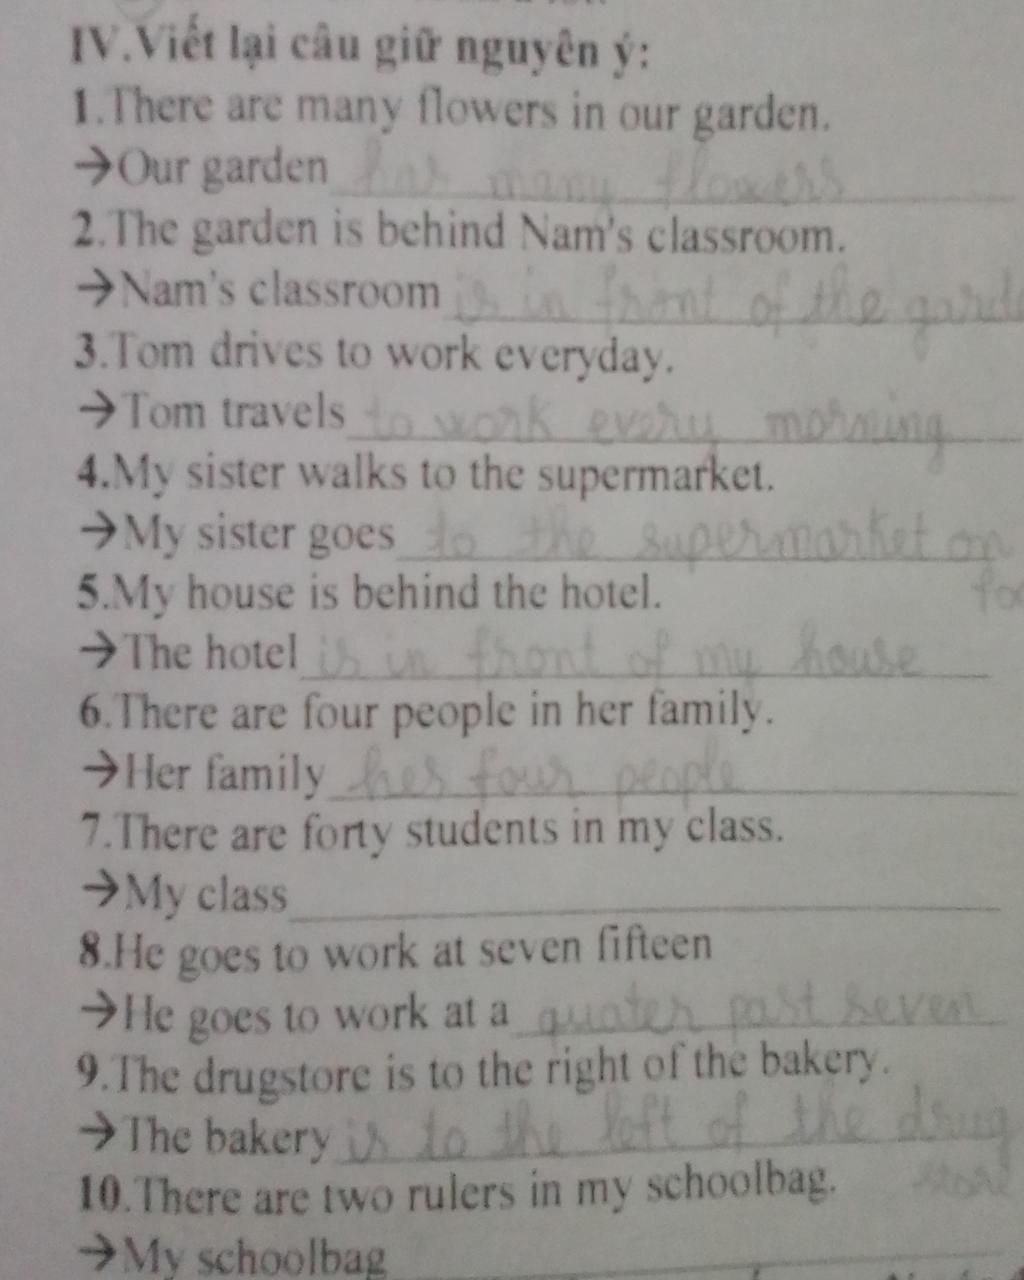 IV.Viết lại câu giữ nguyên ý:
1.There are many flowers in our garden.
→Our garden has many flowers
2.The garden is behind Nam's classroom.
→Nam's classroom is in front of the garde
3.Tom drives to work everyday.
→Tom travels to work every morning
4.My sister walks to the supermarket.
→My sister goes to the supermarket on
foo
5.My house is behind the hotel.
→The hotel is in front of my house
6.There are four people in her family.
→Her family has four people
7.There are forty students in my class.
→My class
8.He goes to work at seven fifteen
→He goes to work at a quater past seven
9.The drugstore is to the right of the bakery.
→The bakery is to the left of the drug
store
10.There are two rulers in my schoolbag.
→My schoolbag